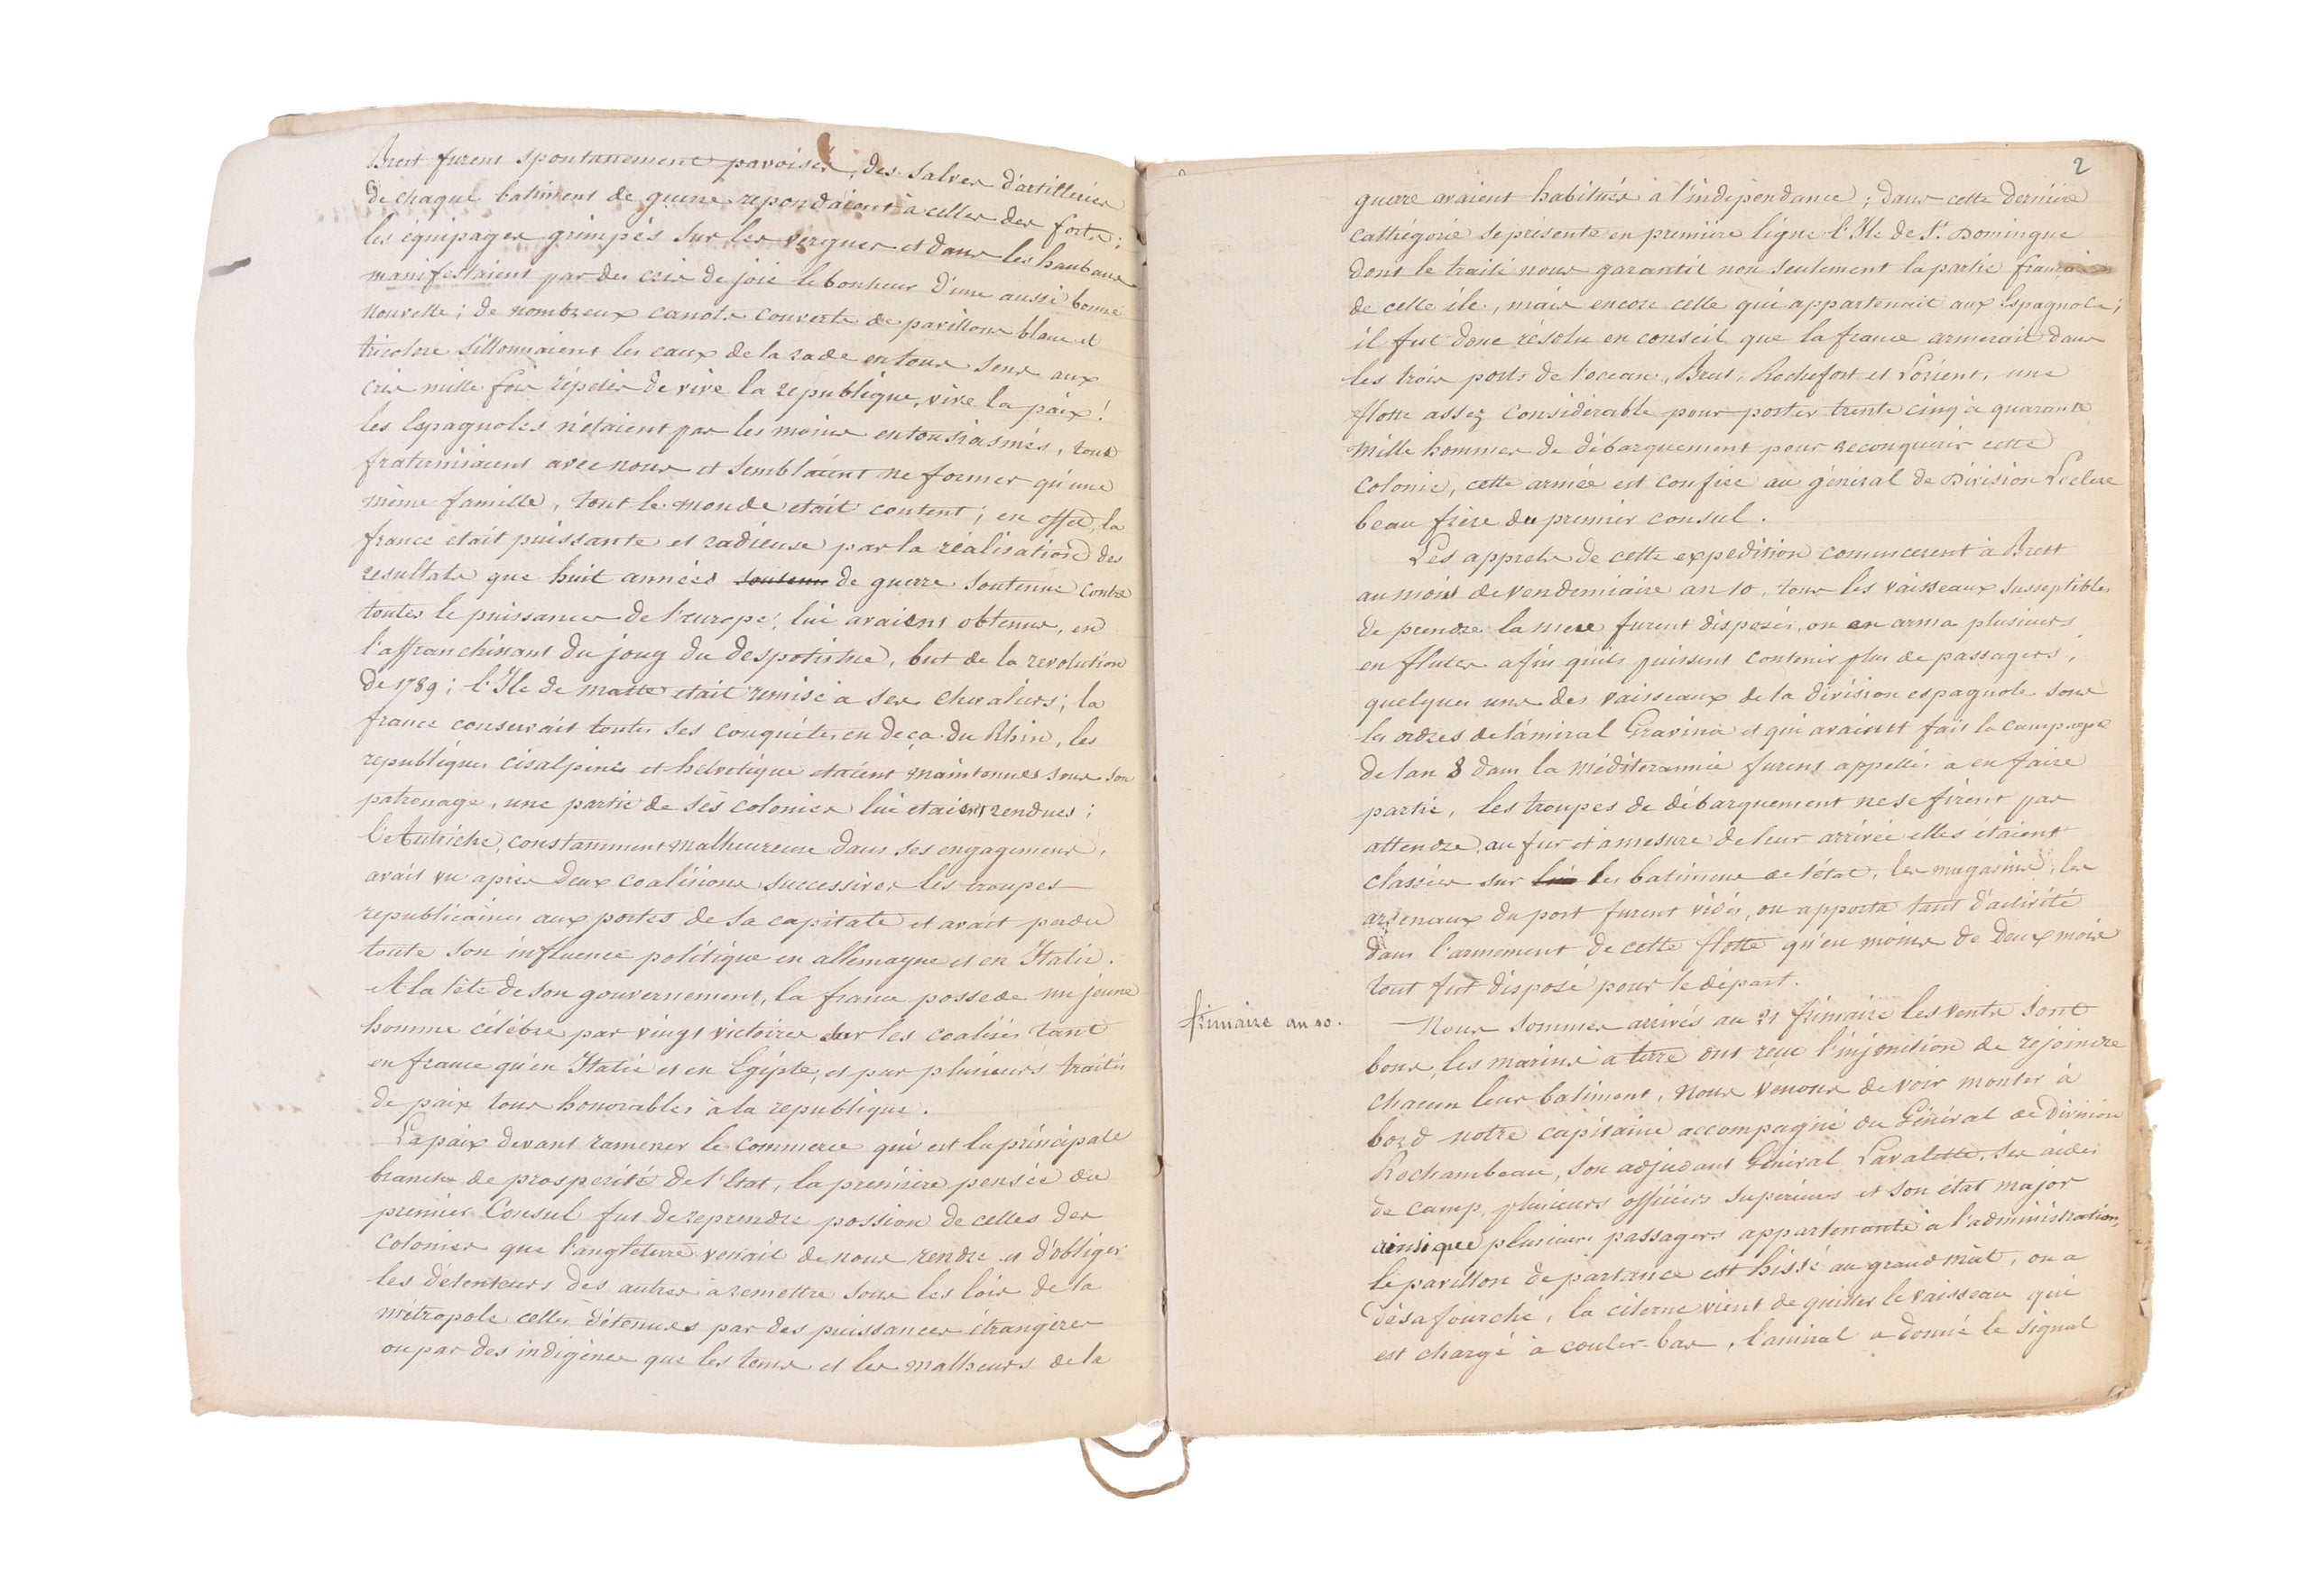 Brest furent spontannement pavoisés, des salves d'artilleries
de chaque batiment de guerre repondaient à celles des forts;
les équipages grimpés sur les vergues et dans les haubans
manifestaient par des cris de joie le bonheur d'une aussi bonne
nouvelle; de nombreux canots couverts de pavillons blanc et
tricolore sillonnaient les eaux de la rade en tous sens aux
cris mille fois répétés de vive la republique, vive la paix!
les Espagnoles n'étaient pas les moins entousiasmés, tous
fraternisaient avec nous et semblaient ne former qu'une
même famille, tout le monde etait content; en effet, la
france etait puissante et radieuse par la réalisation des
resultats que huit années soutenu de guerre soutenue contre
toutes le puissances de l'europe, lui avaient obtenus, en
l'affranchissant du joug du despotisme, but de la revolution
de 1789; l'Ile de malte etait remise a ses chevaliers; la
france conservait toutes ses conquétes en deça du Rhin, les
republiques cisalpines et helvetique etaient maintenues sous son
patronage, une partie de ses colonies lui etaient rendues;
l'Autriche, constamment malheureuse dans ses engagemens,
avait vu après deux coalisions successives les troupes
republicaines aux portes de sa capitale et avait perdu
toute son influence politique en allemagne et en Italie.
A la tête de son gouvernement, la france possede un jeune
homme célébre par vingt victoires sur les coalisés tant
en france qu'en Italie et en Egipte, et par plusieurs traités
de paix tous honorables à la republique.
La paix devant ramener le commerce qui est la principale
branche de prosperité de l'Etat, la première pensée du
premier Consul fut de reprendre possion de celles des
colonies que l'angleterre venait de nous rendre et d'obliger
les détenteurs des autres a remettre sous les lois de la
métropole celles détenues par des puissances étrangères
ou par des indigénes que les tems et les malheurs de la
2
guerre avaient habitués à l'indépendance; dans cette dernière
cathégorie se présente en premiere ligne l'Ile de St. Domingue
dont le traité nous garantit non seulement la partie française
de cette ile, mais encore celle qui appartenait aux Espagnols;
il fut donc résolu en conseil que la france armerait dans
les trois ports de l'ocean, Brest, Rochefort et Lorient, une
flotte assez considérable pour porter trente cinq à quarante
mille hommes de débarquement pour reconquerir cette
Colonie, cette armée est confiée au général de Division Leclerc
beau frère du premier consul.
Les apprets de cette expedition commencerent à Brest
au mois de vendemiaire an 10, tous les vaisseaux susseptibles
de prendre la mere furent disposés, on en arma plusieurs
en flutes afin qu'ils puissent contenir plus de passagers,
quelques uns des vaisseaux de la division espagnole sous
les ordres de l'amiral Gravina et qui avaient fait la campagne
de l'an 8 dans la méditerannée furent appellés a en faire
partie, les troupes de débarquement ne se firent pas
attendre, au fur et à mesure de leur arrivée elles étaient
classées sur les batimens de l'état, les magasins, les
arsenaux du port furent vidés, on apporta tant d'activité
dans l'armement de cette flotte qu'en moins de deux mois
tout fut disposé pour le départ.
frimaire an 10.
Nous sommes arrivés au 21 frimaire les vents sont
bons, les marins à terre ont reçu l'injonition de rejoindre
chacun leur batiment, nous venons de voir monter à
bord notre capitaine accompagné du Général de Division
Rochambeau, son adjudant Général Lavalette, ses aides
de camp, plusieurs officiers superieurs et son état major
ainsi que plusieurs passagers appartenants à l'administration,
le pavillon de partance est hissé au grand mât, on a
désafourché, la citerne vient de quitter le vaisseau qui
est chargé à couler-bas, l'amiral a donné le signal